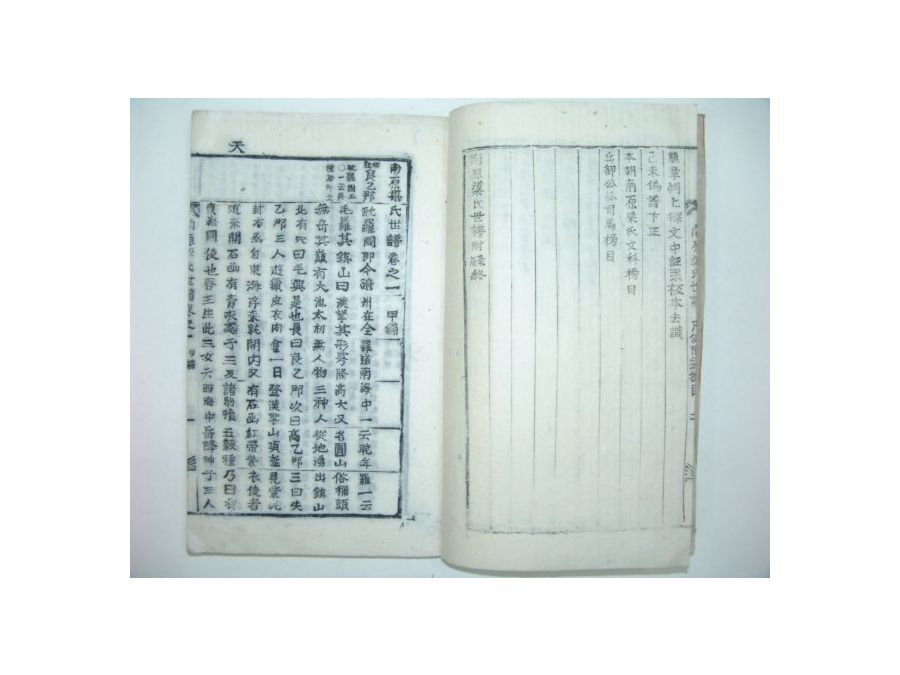 己未僞譜卞正
本朝南原梁氏文科榜目
兵部公派司馬榜目
南原梁氏世譜附錄終
天
南原梁氏世譜卷之一 甲編
良乙那 耽羅國卽今濟州在全羅道南海中一云耽牟羅一云
毛羅其鎭山曰漢拏其形穹隆高大又名圓山俗稱頭
無岳其巓有大池太初無人物三神人從地湧出鎭山
北有穴曰毛興是也長曰良乙那次曰高乙那三曰夫
乙那三人遊獵皮衣肉食一日登漢拏山頂 見紫泥
封木函自東海浮來就開內又有石函紅帶紫衣使者
隨來開石函有靑衣處子三及諸駒犢五穀種乃曰我
國使也吾王生此三女云西海中岳降神子三人